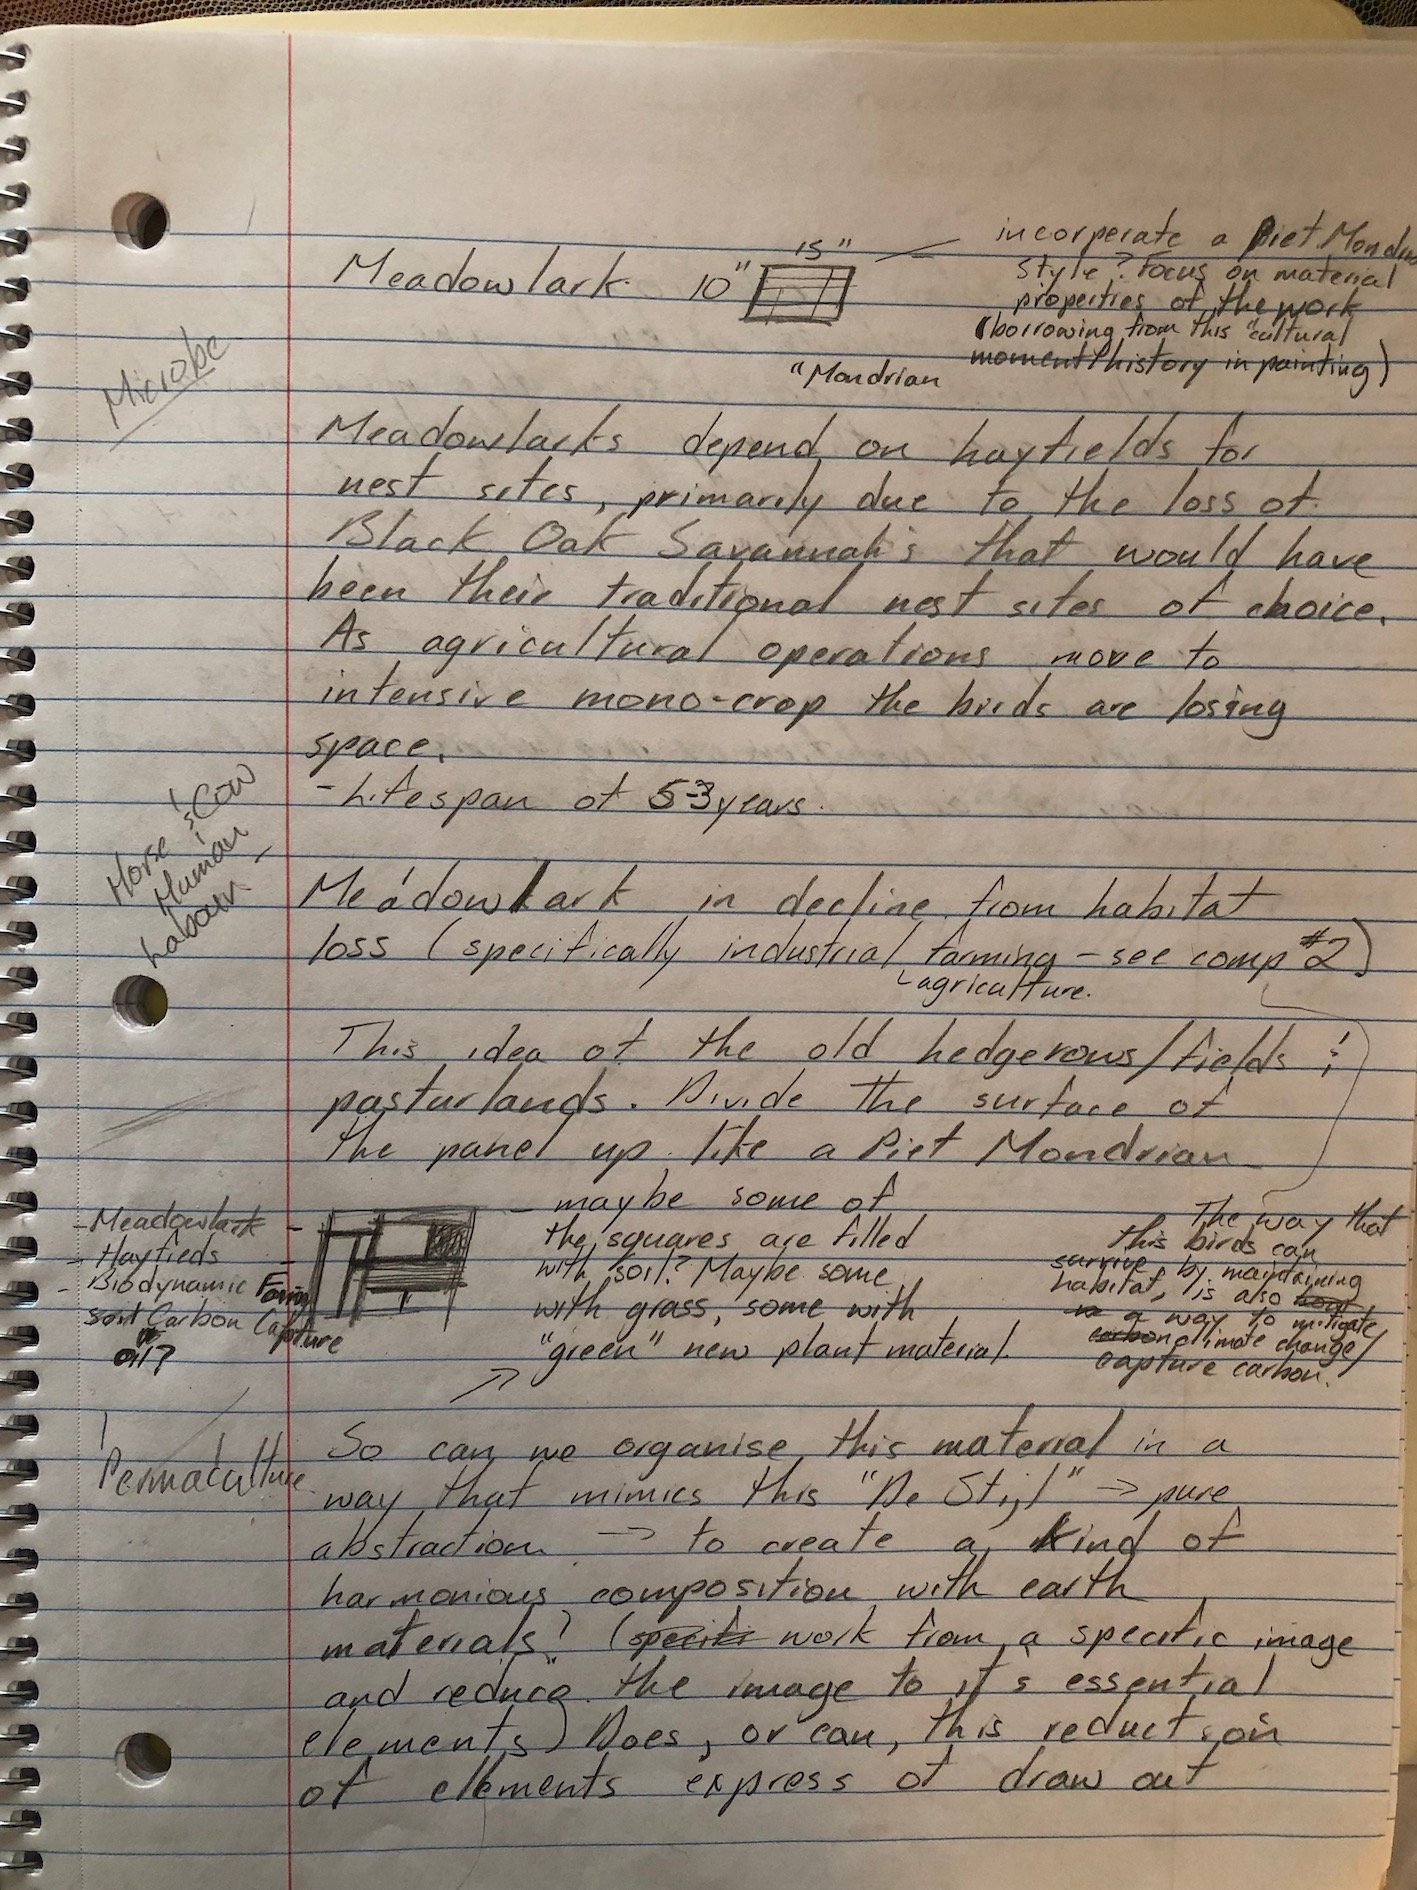 incorperate a Piet Mondrian
15"
Style? Focus on material
Meadowlark 10"
properties of the work
(borrowing from this "cultural
moment/history in painting)
"Mondrian
Microbe
Meadowlarks depend on hayfields for
nest sites, primarily due to the loss of
Black Oak Savannah's that would have
been their traditional nest sites of choice.
As agricultural operations move to
intensive mono-crop the birds are losing
space.
- Lifespan of 5-3 years.
Horse & Cow
Human
Labour
Meadowlark in decline from habitat
loss (specifically industrial farming - see comp #2)
agriculture.
This idea of the old hedgerows/fields &
pasturlands. Divide the surface of
the panel up like a Piet Mondrian
- Meadowlark -
- Hayfieds -
- Biodynamic Farming
soil Carbon Capture
oil?
- maybe some of
the squares are filled
with soil? Maybe some
with grass, some with
"green" new plant material.
The way that
this birds can
survive by maintaining
habitat, is also
a way to mitigate
carbon climate change/
capture carbon.
Permaculture
So can we organise this material in a
way that mimics this "De Stijl" → pure
abstraction → to create a kind of
harmonious composition with earth
materials? (specific work from a specific image
and "reduce" the image to it's essential
elements) Does, or can, this reduction
of elements express of draw out